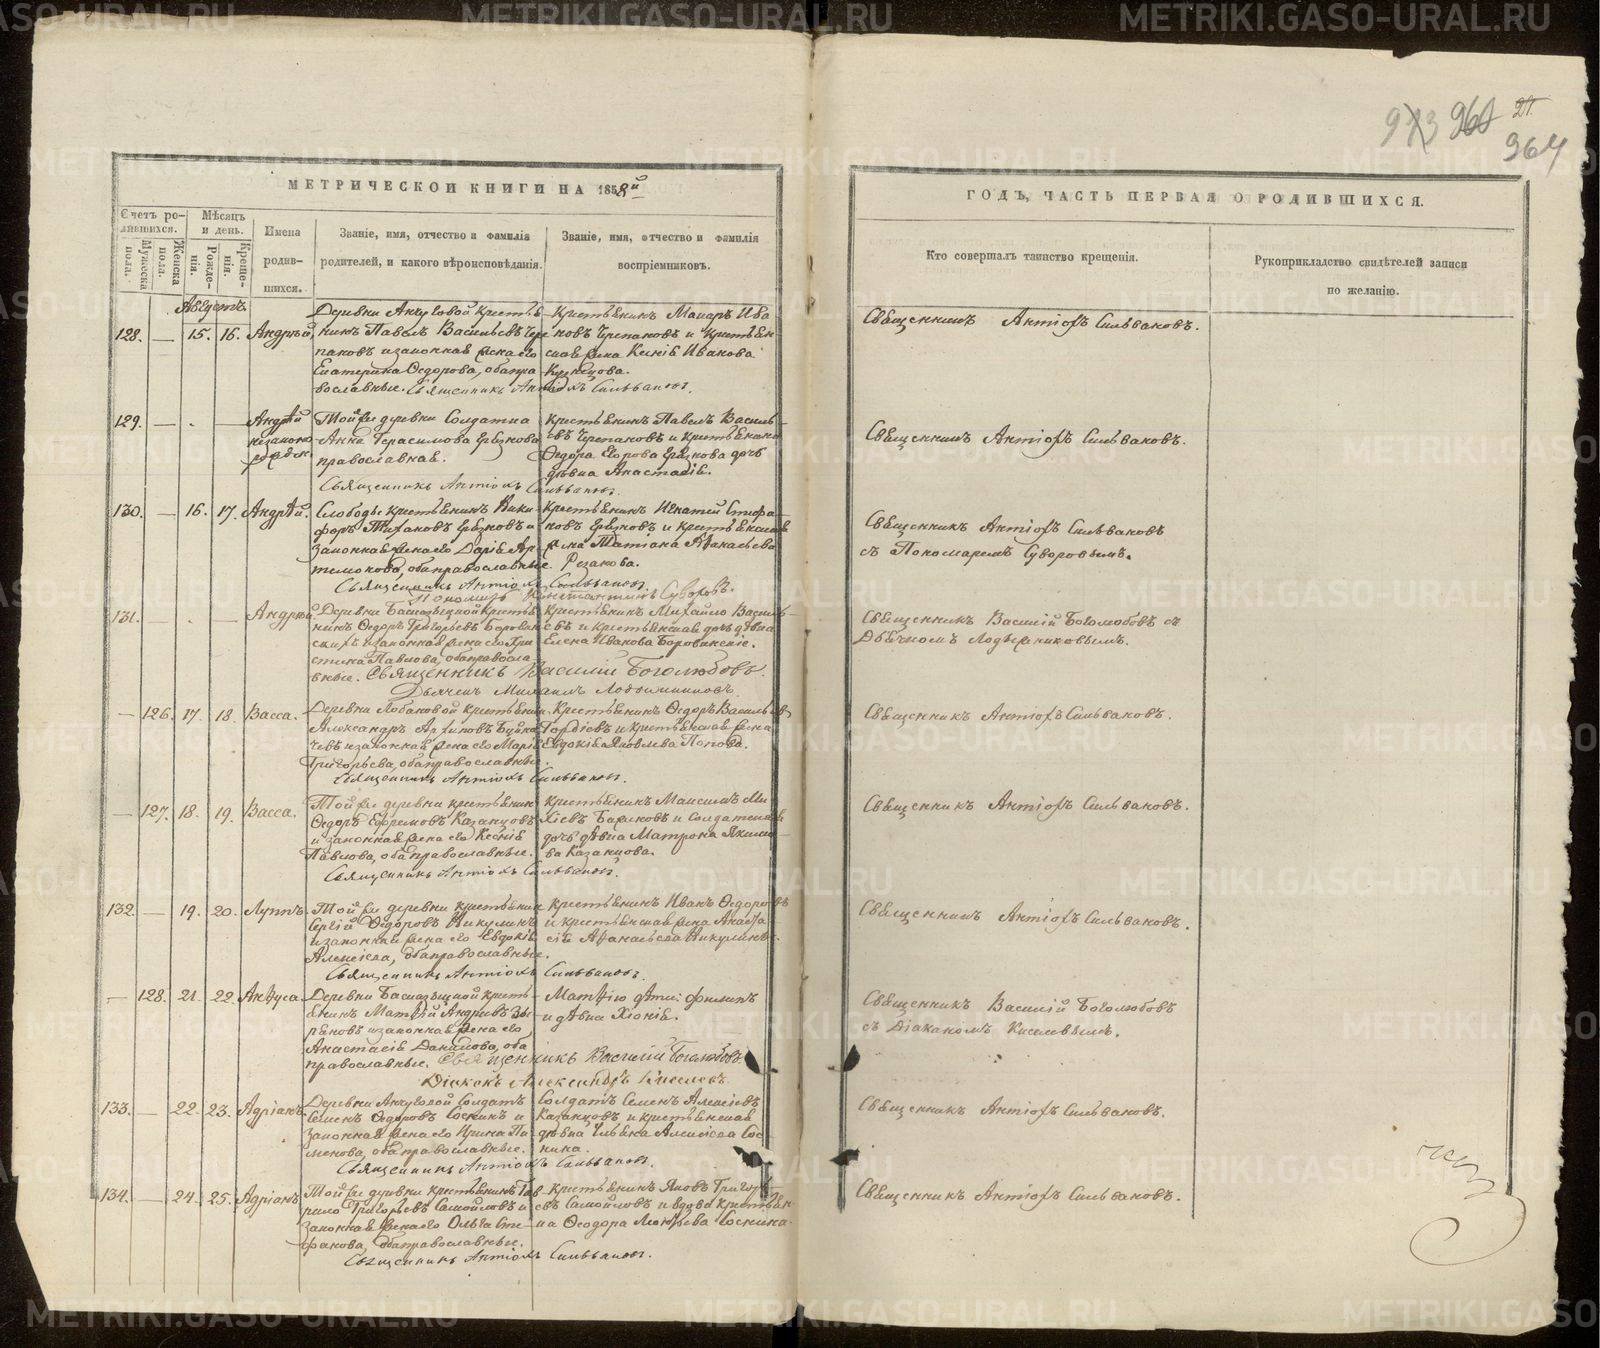 973 960 21
964
МЕТРИЧЕСКОЙ КНИГИ НА 1858й
ГОДЪ, ЧАСТЬ ПЕРВАЯ О РОДИВШИХСЯ.
Счетъ родившихся.
Мужеска пола.
Женска пола.
Мѣсяцъ и день.
Рожденія.
Крещенія.
Имена родившихся.
Званіе, имя, отчество и фамилія
родителей, и какого вѣроисповѣданія.
Званіе, имя, отчество и фамилія
воспріемниковъ.
Кто совершалъ таинство крещенія.
Рукоприкладство свидѣтелей записи
по желанію.
Августъ.
128. — 15. 16. Андрей,
Деревни Анчуговой крестья-
нинъ Павелъ Васильевъ Чере
пановъ и законная жена его
Екатерина Ѳедорова, оба пра
вославные. Священникъ Антіохъ Сильвановъ.
Крестьянинъ Макаръ Ива
новъ Черепановъ и крестьян
ская жена Ксенія Иванова
Кузнецова.
Священникъ Антіохъ Сильвановъ.
129. — . — Андрей
незаконо
рожден
Той же деревни Солдатка
Анна Герасимова
православная.
Священникъ Антіохъ Сильвановъ.
Крестьянинъ Павелъ Василь
евъ Черепановъ и крестьянина
Ѳедора Егорова дочь
дѣвка Анастасія.
Священникъ Антіохъ Сильвановъ.
130. — 16. 17. Андрей.
Слободы крестьянинъ Ники
форъ
законная жена его Дарія Ар
темонова, оба православные.
Священникъ Антіохъ Сильвановъ.
Пономарь Константинъ Суворовъ.
Крестьянинъ Игнатій Стефа
новъ и крестьянская
жена Татіана Афанасьева
Резакова.
Священникъ Антіохъ Сильвановъ
съ Пономаремъ Суворовымъ.
131. — . — Андрей.
Деревни крестья
нинъ Ѳедоръ Григорьевъ Боровин
скихъ и законная жена его Хри
стина Павлова, оба правосла
вные. Священникъ Василій Боголюбовъ.
Дьячекъ Михаилъ
Крестьянинъ Михайло Василь
евъ и крестьянская дочь дѣвка
Елена Иванова Боровинскіе.
Священникъ Василій Боголюбовъ съ
Дьячкомъ
— 126. 17. 18. Васса.
Деревни Лобановой крестьянин
Александръ
и законная жена его Марія
Григорьева, оба православные.
Священникъ Антіохъ Сильвановъ.
Крестьянинъ Ѳедоръ Васильевъ
Гордѣевъ и крестьянская жена
Евдокія Яковлева Попова.
Священникъ Антіохъ Сильвановъ.
— 127. 18. 19. Васса.
Той же деревни крестьянин
Ѳедоръ Ефремовъ Казанцовъ
и законная жена его Ксенія
Павлова, оба православные.
Священникъ Антіохъ Сильвановъ.
Крестьянинъ Максимъ Ми
и солдатская
дочь дѣвка Матрона Яким
ва Казанцова.
Священникъ Антіохъ Сильвановъ.
132. — 19. 20. Луппъ.
Той же деревни крестьянин
Сергій Ѳедоровъ Никулинъ
и законная жена его Евдокія
Алексіева, оба православные.
Священникъ Антіохъ Сильвановъ.
Крестьянинъ Иванъ Ѳедоровъ
и крестьянская жена Анаста
сія Афанасьева Никулины.
Священникъ Антіохъ Сильвановъ.
— 128. 21. 22. Анѳуса.
Деревни кресть
янинъ Матѳій Андреевъ Зы
ряновъ и законная жена его
Анастасія Данилова, оба
православные. Священникъ Василій Боголюбовъ
Діаконъ Александръ Киселевъ.
Матѳію дѣти: Филиппъ
и дѣвка Хіонія.
Священникъ Василій Боголюбовъ
съ Діакономъ Киселевымъ.
133. — 22. 23. Адріанъ.
Деревни Анчуговой Солдатъ
Семенъ Ѳедоровъ Соснинъ и
законная жена его Ирина Пи
менова, оба православные.
Священникъ Антіохъ Сильвановъ.
Солдатъ Семенъ Алексіевъ
Казанцовъ и крестьянская
дѣвка Ульяна Алексіева Сос
нина.
Священникъ Антіохъ Сильвановъ.
134. — 24. 25. Адріанъ
Той же деревни крестьянинъ Гав
рило Григорьевъ Самойловъ и
законная жена его Ольга Сте
фанова, оба православные.
Священникъ Антіохъ Сильвановъ.
Крестьянинъ Яковъ Григорь
евъ Самойловъ и вдова крестьян
ка Ѳеодора Соснина.
Священникъ Антіохъ Сильвановъ.
METRIKI.GASO-URAL.RU